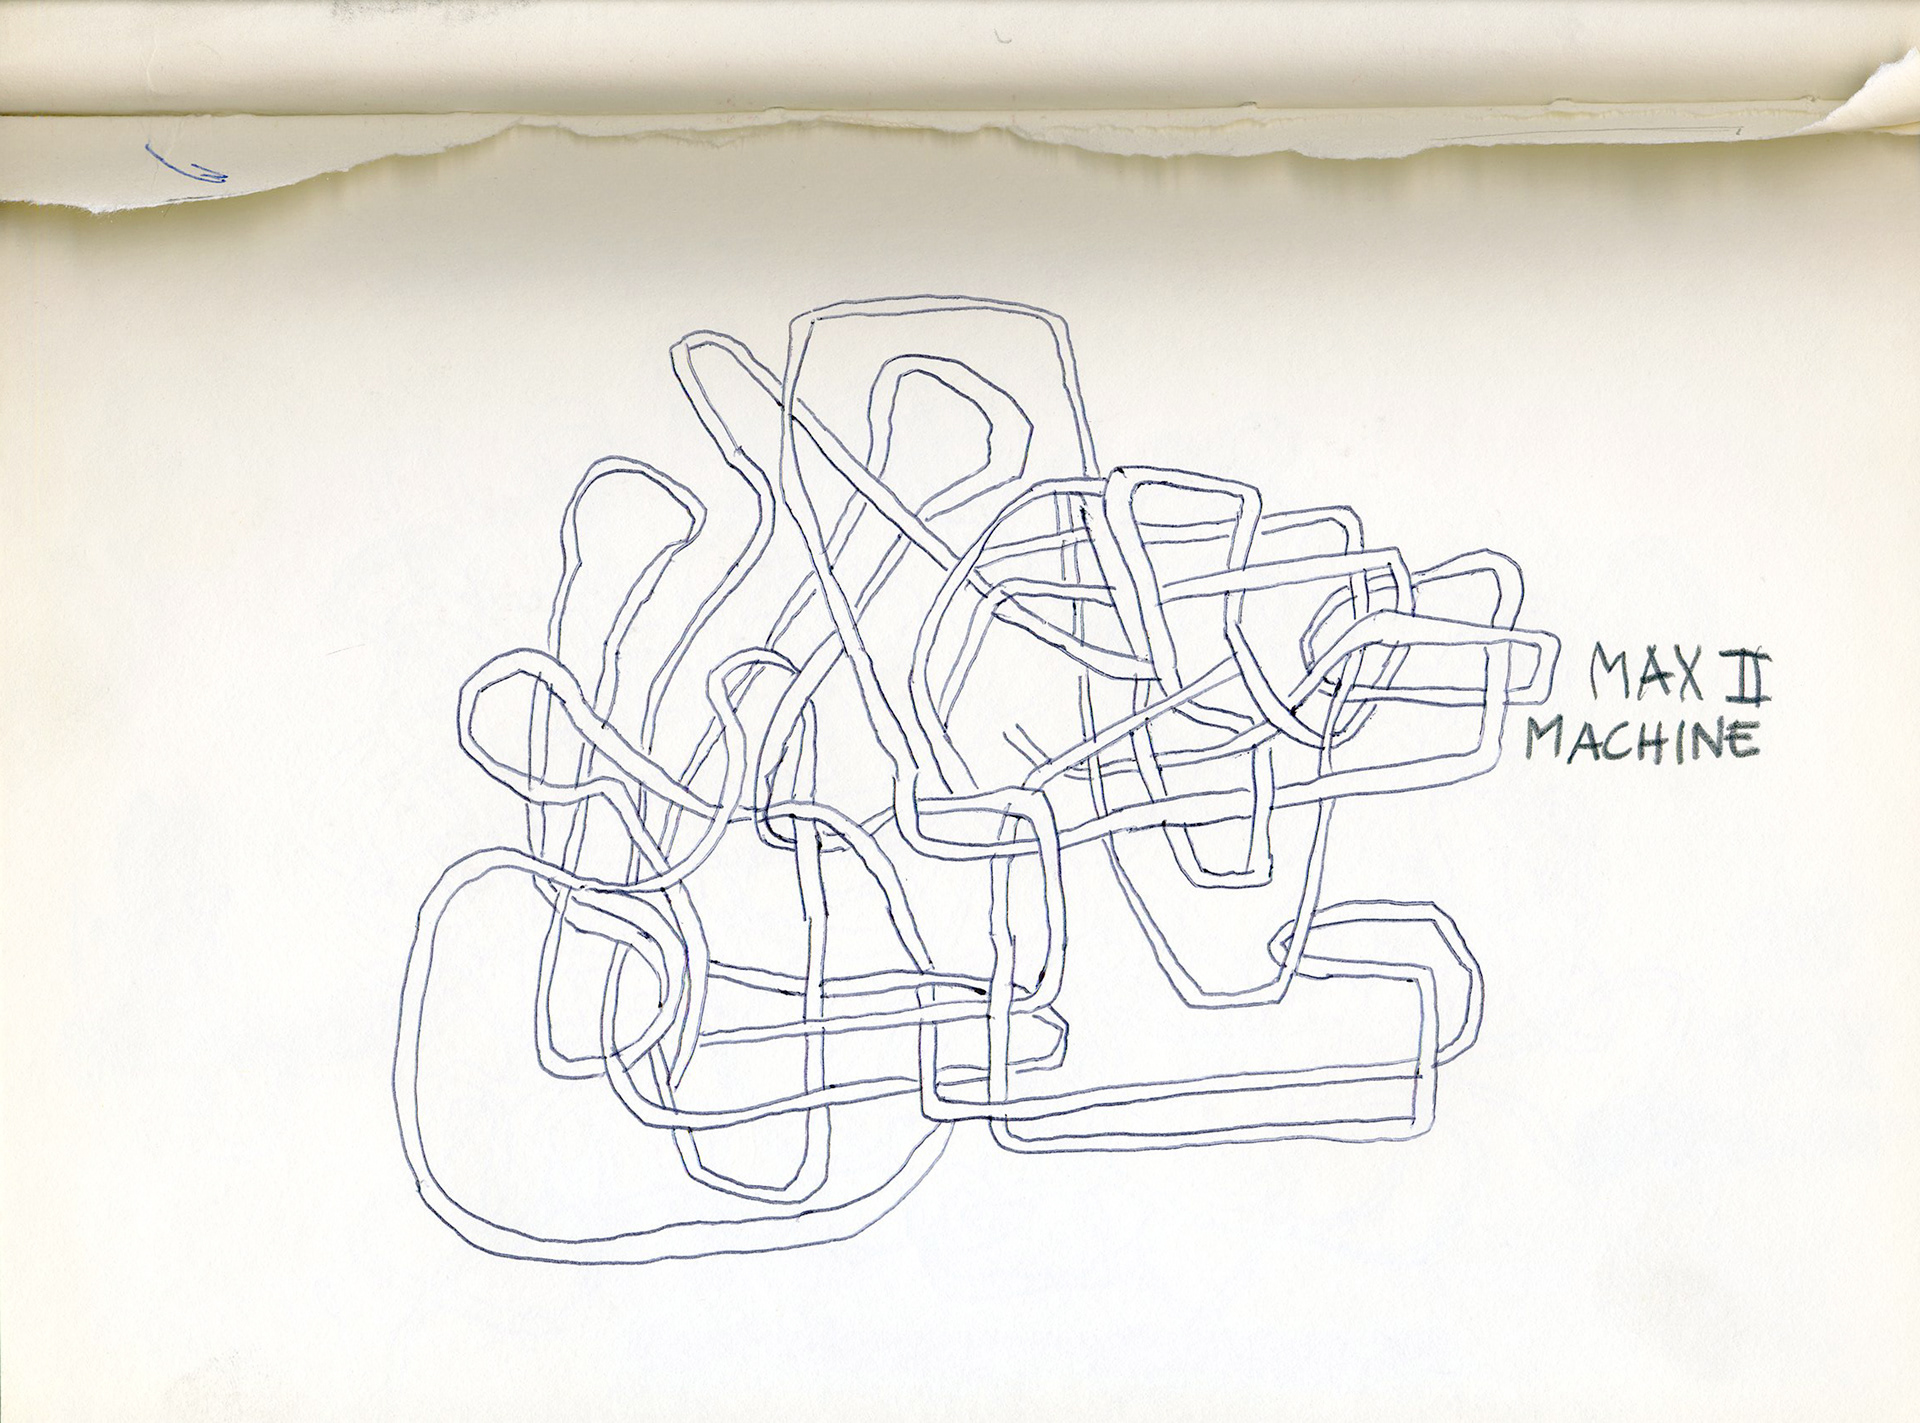 MAX II
MACHINE